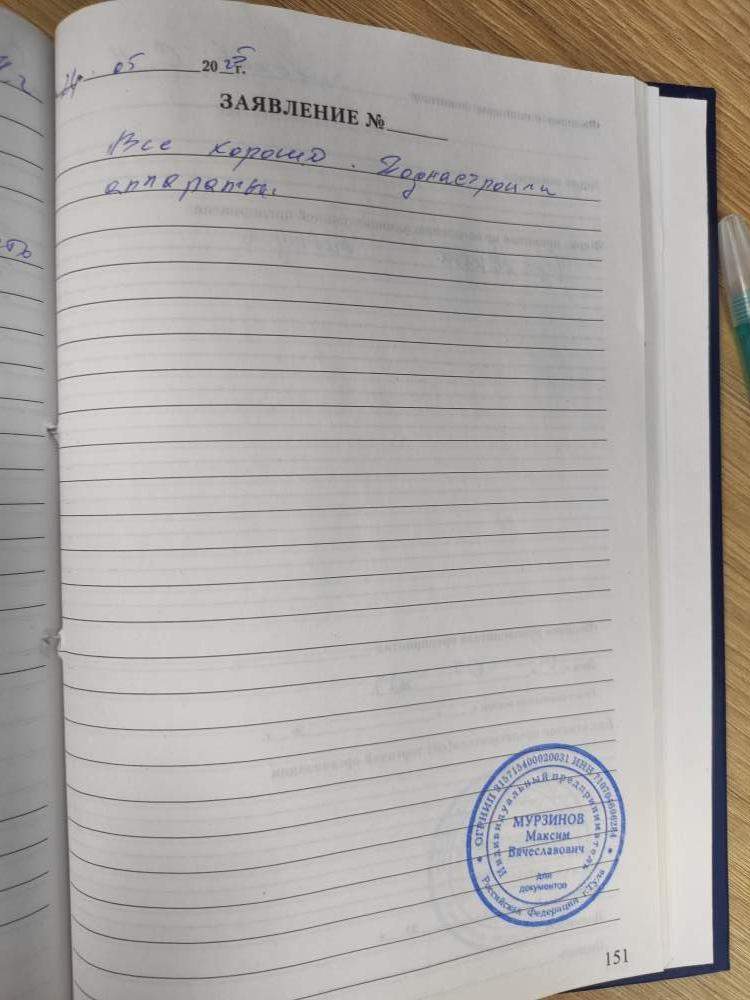 05 2025г.
ЗАЯВЛЕНИЕ №
Все хорошо. Поднастроили
аппараты.
ОГРНИП 315715400020031 ИНН
Индивидуальный предприниматель
МУРЗИНОВ
Максим
Вячеславович
для
документов
Российская Федерация г.Тула
151